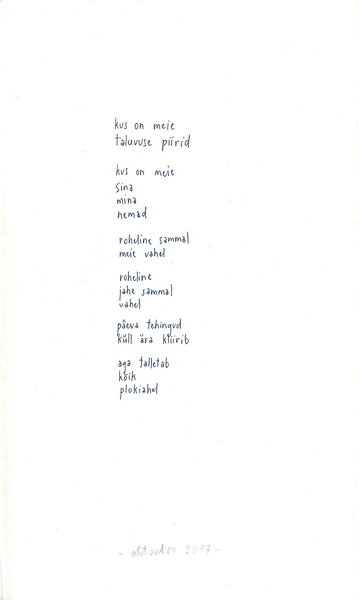 kus on meie
taluvuse piirid
kus on meie
sina
mina
nemad
roheline sammal
meie vahel
roheline
jahe sammal
vahel
päeva tehingud
küll ära kliirib
aga talletab
kõik
plokiahel
- oktoober 2017 -